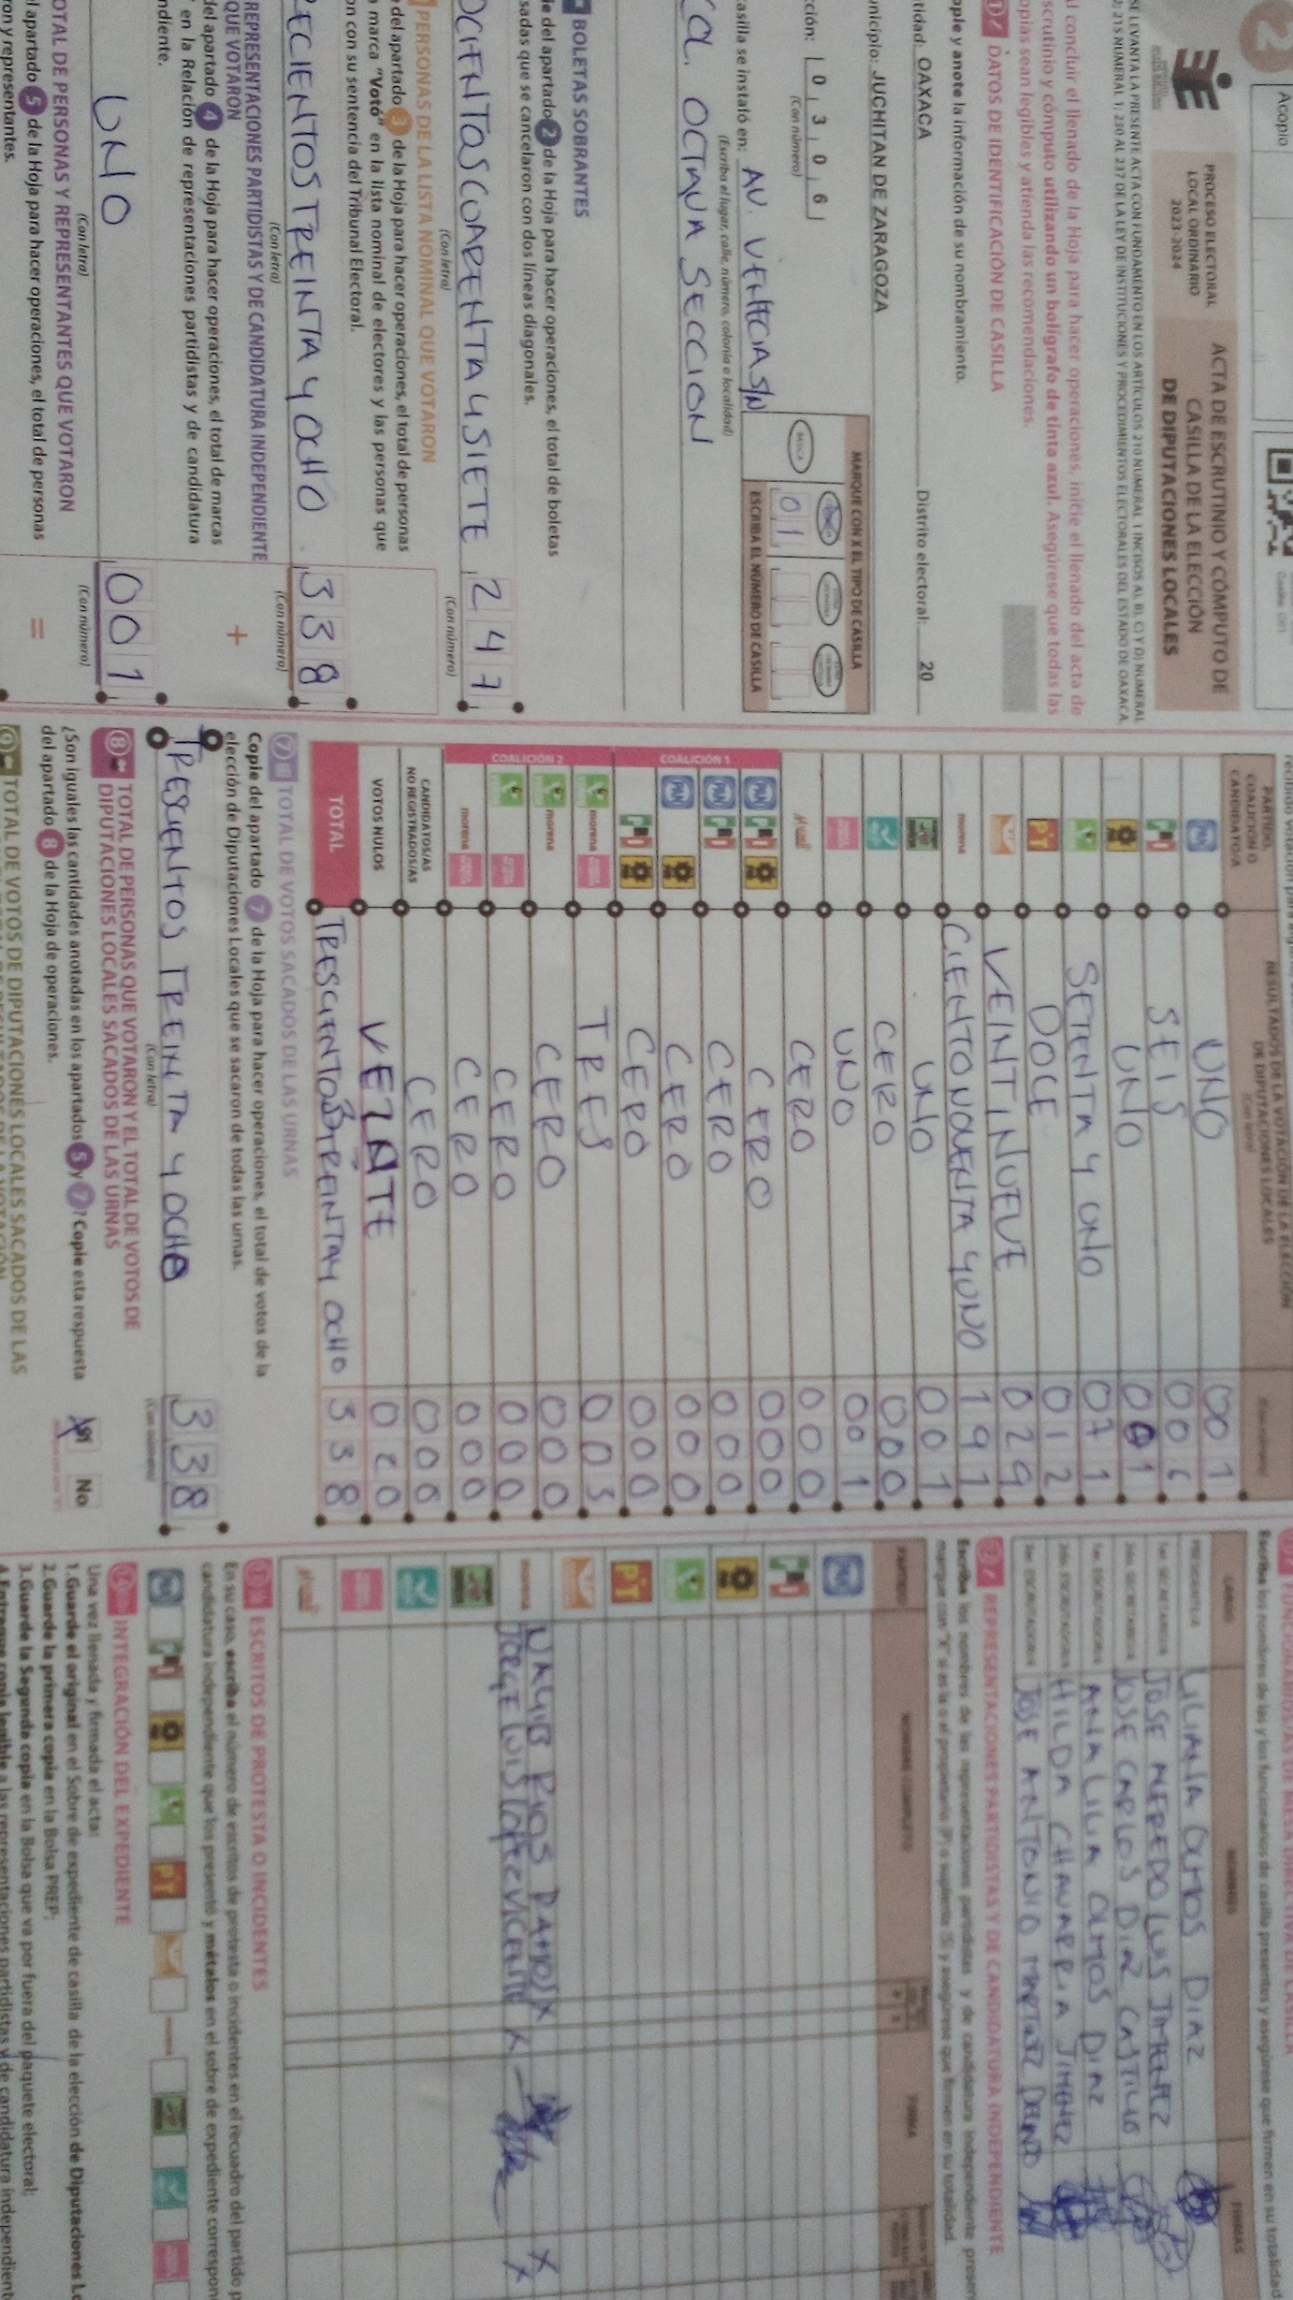 2
Acopio
PROCESO ELECTORAL
LOCAL ORDINARIO
2023-2024
ACTA DE ESCRUTINIO Y CÓMPUTO DE
CASILLA DE LA ELECCIÓN
DE DIPUTACIONES LOCALES
SE LEVANTA LA PRESENTE ACTA CON FUNDAMENTO EN LOS ARTÍCULOS 210 NUMERAL 1 INCISOS A), B), C) Y D); NUMERAL
215 NUMERAL 1; 230 AL 237 DE LA LEY DE INSTITUCIONES Y PROCEDIMIENTOS ELECTORALES DEL ESTADO DE OAXACA.
l concluir el llenado de la Hoja para hacer operaciones, inicie el llenado del acta de
scrutinio y cómputo utilizando un bolígrafo de tinta azul. Asegúrese que todas las
opias sean legibles y atienda las recomendaciones.
1 DATOS DE IDENTIFICACIÓN DE CASILLA
ople y anote la información de su nombramiento.
tidad: OAXACA Distrito electoral: 20
nicipio: JUCHITAN DE ZARAGOZA
cción: 0 3 0 6
(Con número)
MARQUE CON X EL TIPO DE CASILLA
BÁSICA
ESCRIBA EL NÚMERO DE CASILLA
0 1
asilla se instaló en: AV. VENECIA S/N
(Escriba el lugar, calle, número, colonia o localidad)
COL. OCTAVA SECCION
BOLETAS SOBRANTES
le del apartado 2 de la Hoja para hacer operaciones, el total de boletas
sadas que se cancelaron con dos líneas diagonales.
OCIENTOS CUARENTA Y SIETE 2 4 7
(Con letra) (Con número)
PERSONAS DE LA LISTA NOMINAL QUE VOTARON
del apartado 3 de la Hoja para hacer operaciones, el total de personas
marca "Votó" en la lista nominal de electores y las personas que
on con su sentencia del Tribunal Electoral.
RECIENTOS TREINTA Y OCHO 3 3 8
(Con letra) (Con número)
REPRESENTACIONES PARTIDISTAS Y DE CANDIDATURA INDEPENDIENTE
QUE VOTARON
del apartado 4 de la Hoja para hacer operaciones, el total de marcas
en la Relación de representaciones partidistas y de candidatura
ndiente.
+
UNO 0 0 1
(Con letra) (Con número)
OTAL DE PERSONAS Y REPRESENTANTES QUE VOTARON
l apartado 5 de la Hoja para hacer operaciones, el total de personas
ron y representantes.
=
PARTIDO,
COALICIÓN O
CANDIDATO/A
RESULTADOS DE LA VOTACIÓN DE LA ELECCIÓN
DE DIPUTACIONES LOCALES
(Con letra)
(Con número)
PAN UNO 0 0 1
PRI SEIS 0 0 6
UNO 0 0 1
SETENTA Y UNO 0 7 1
PT DOCE 0 1 2
VEINTINUEVE 0 2 9
morena CIENTO NOVENTA Y UNO 1 9 1
UNO 0 0 1
CERO 0 0 0
UNO 0 0 1
CERO 0 0 0
COALICIÓN 1
CERO 0 0 0
CERO 0 0 0
CERO 0 0 0
CERO 0 0 0
COALICIÓN 2
morena TRES 0 0 3
morena CERO 0 0 0
CERO 0 0 0
morena CERO 0 0 0
CANDIDATOS/AS
NO REGISTRADOS/AS CERO 0 0 0
VOTOS NULOS VEINTE 0 2 0
TOTAL TRESCIENTOS TREINTA Y OCHO 3 3 8
7 TOTAL DE VOTOS SACADOS DE LAS URNAS
Copie del apartado 7 de la Hoja para hacer operaciones, el total de votos de la
elección de Diputaciones Locales que se sacaron de todas las urnas.
TRESCIENTOS TREINTA Y OCHO 3 3 8
(Con letra) (Con número)
8 TOTAL DE PERSONAS QUE VOTARON Y EL TOTAL DE VOTOS DE
DIPUTACIONES LOCALES SACADOS DE LAS URNAS
¿Son iguales las cantidades anotadas en los apartados 5 y 7? Copie esta respuesta
del apartado 8 de la Hoja de operaciones.
Sí No
9 TOTAL DE VOTOS DE DIPUTACIONES LOCALES SACADOS DE LAS
Escriba los nombres de las y los funcionarios de casilla presentes y asegúrese que firmen en su totalidad
CARGO NOMBRES FIRMAS
PRESIDENTE/A LILIANA OLMOS DIAZ
1er. SECRETARIO/A JOSE ALFREDO LUIS JIMENEZ
2do. SECRETARIO/A JOSE CARLOS DIAZ CASTILLO
1er. ESCRUTADOR/A ANA LILIA OLMOS DIAZ
2do. ESCRUTADOR/A HILDA CHAVARRIA JIMENEZ
3er. ESCRUTADOR/A JOSE ANTONIO MARTINEZ
REPRESENTACIONES PARTIDISTAS Y DE CANDIDATURA INDEPENDIENTE
Escriba los nombres de las representaciones partidistas y de candidatura independiente presen
marque con "X" si es la o el propietario (P) o suplente (S) y asegúrese que firmen en su totalidad.
PARTIDO NOMBRE COMPLETO FIRMA
PAN
PRI
PT
morena
NAYIB RIOS RAMOS X
JORGE LUIS LOPEZ VICENTE X
ESCRITOS DE PROTESTA O INCIDENTES
En su caso, escriba el número de escritos de protesta o incidentes en el recuadro del partido p
candidatura independiente que los presentó y métalos en el sobre de expediente correspon
INTEGRACIÓN DEL EXPEDIENTE
Una vez llenada y firmada el acta:
1.Guarde el original en el Sobre de expediente de casilla de la elección de Diputaciones Lo
2.Guarde la primera copia en la Bolsa PREP;
3.Guarde la Segunda copia en la Bolsa que va por fuera del paquete electoral;
4.Entregue copia legible a las representaciones partidistas y de candidatura independient